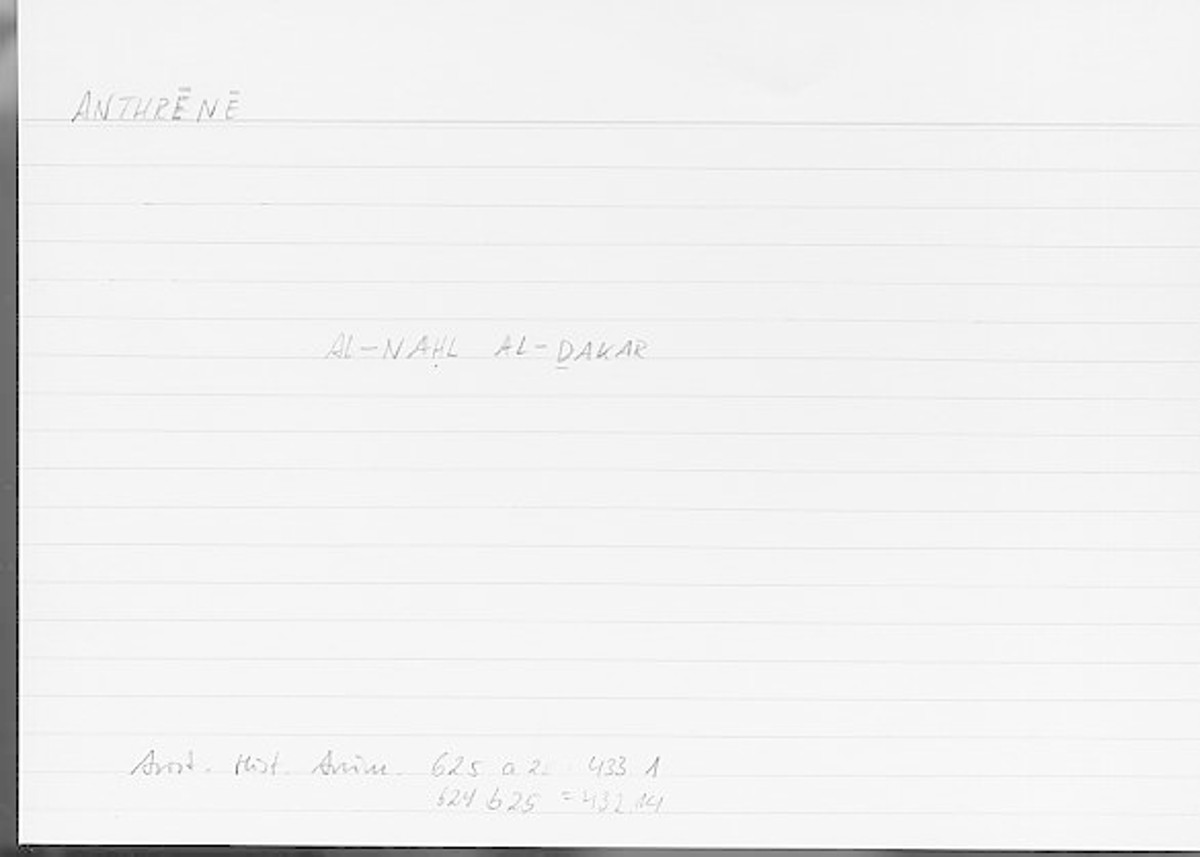 ANTHRĒNĒ
AL-NAḤL AL-ḎAKAR
Arist. Hist. Anim. 625 a 2 433 1
624 b25 = 432 14